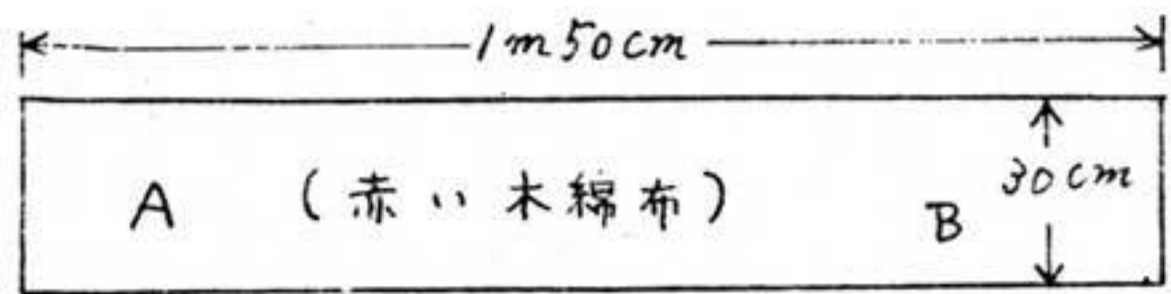 1m50cm
A (赤い木綿布) B 30cm